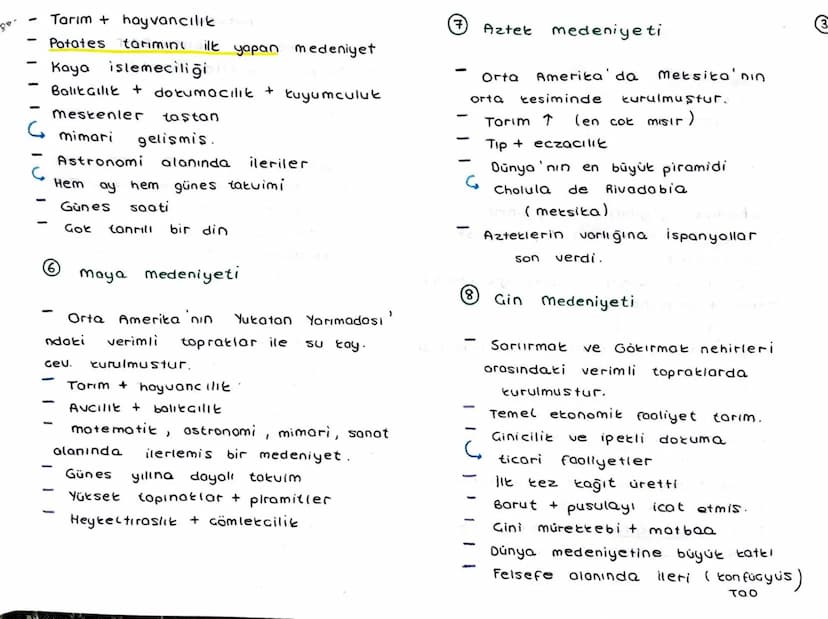 - Tarım + hayvancılık
- Patates tarımını ilk yapan medeniyet
- Kaya işlemeciliği
- Balıkcılık + dokumacılık + kuyumculuk
- meskenler taştan
mimari gelişmiş.
- Astronomi alanında ileriler
Hem ay hem günes takvimi
- Günes saati
- Cok tanrılı bir din
⑥ maya medeniyeti
- Orta Amerika'nın Yukatan Yarımadası'
ndaki verimli topraklar ile su kay.
cev. kurulmustur.
- Tarım + hayvancılık
- Avcılık + balıkcılık
- matematik, astronomi, mimari, sanat
alanında ilerlemis bir medeniyet.
- Günes yılına dayalı takvim
- Yüksek tapınaklar + piramitler
- Heykeltıraslık + cömlekcilik
③
⑦ Aztek medeniyeti
- Orta Amerika'da Meksika'nın
orta kesiminde kurulmuştur.
- Tarım ↑ (en cok mısır)
- Tıp + eczacılık
- Dünya'nın en büyük piramidi
Cholula de Rivadabia
(meksika)
- Azteklerin varlığına İspanyollar
son verdi.
⑧ Cin medeniyeti
- Sarıırmak ve Gökırmak nehirleri
arasındaki verimli topraklarda
kurulmustur.
- Temel ekonomik faaliyet tarım.
- Cinicilik ve ipekli dokuma
ticari faaliyetler
- İlk kez kağıt üretti
- Barut + pusulayı icat etmis.
- Cini mürekkebi + matbaa
- Dünya medeniyetine büyük katkı
- Felsefe alanında ileri (konfücyüs)
TAO